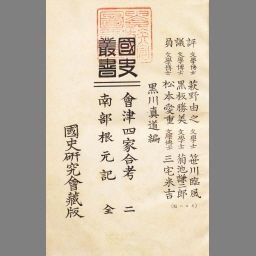 評議員
文學博士 萩野由之 文學士 笹川臨風
文學博士 黒板勝美 文學士 菊池謙二郎
文學博士 松本愛重 文學博士 三宅米吉
(いろは順)
黒川真道編
國史叢書
會津四家合考 二
南部根元記 全
國史研究會藏版